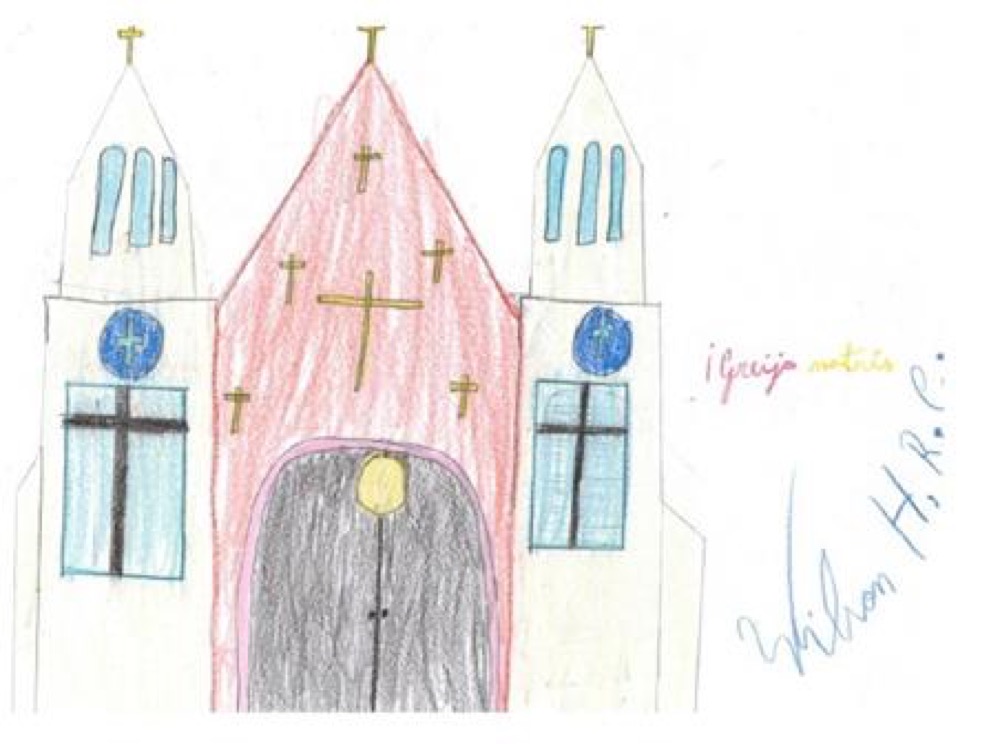 igreija matris
Wilson H. R. P.